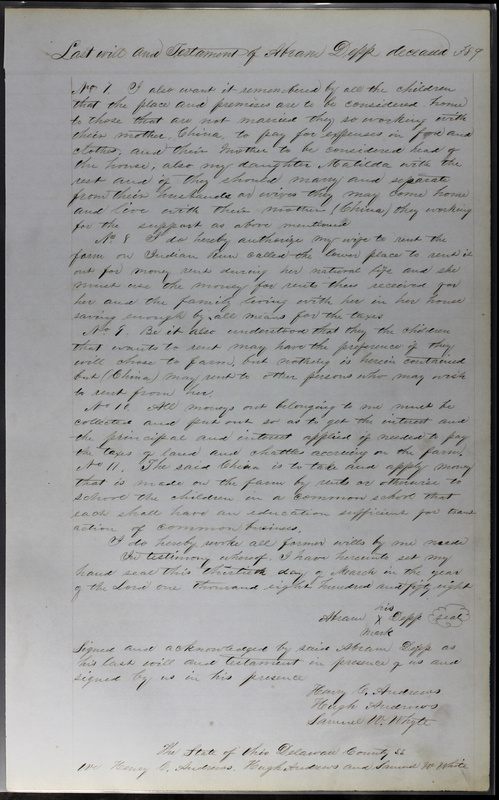 Last will and Testament of Abram Depp deceased 369
No. 7. I also want it remembered by all the children
that the place and premises are to be considered home
to those that are not married they so working with
their mother, China, to pay for expenses in food and
clothes, and their Mother to be considered head of
the house, also my daughter Matilda with the
rest and if they should marry and separate
from their husbands or wives they may come home
and live with their mother (China) they working
for the support as above mentioned
No. 8 I do hereby authorize my wife to rent the
farm on Indian Run called the lower place to rent it
out for money rent during her natural life and she
must use the money for rents thus received for
her and the family living with her in her house
saving enough by all means for the taxes
No. 9. Be it also understood that they the children
that wants to rent may have the preference if they
will chose to farm, but nothing is herein contained
but (China) may rent to other persons who may wish
to rent from her.
No 10. All moneys out belonging to me must be
collected and put out so as to get the interest and
the principal and interest applied if needed to pay
the taxes of land and chattles accruing on the farm.
No 11. The said China is to take and apply money
that is made on the farm by rents or otherwise to
school the children in a common school that
each shall have an education sufficient for trans
action of common business.
I do hereby revoke all former wills by me made
In testimony whereof I have hereunto set my
hand seal this thirtieth day of March in the year
of the Lord one thousand eight hundred and fifty eight
his
Abram X Depp seal
mark
Signed and acknowledged by said Abram Depp as
his last will and testament in presence of us and
signed by us in his presence
Henry C. Andrews
Hugh Andrews
Samuel W. Whyte
The State of Ohio Delaware County ss
We Henry C. Andrews, Hugh Andrews and Samuel W White